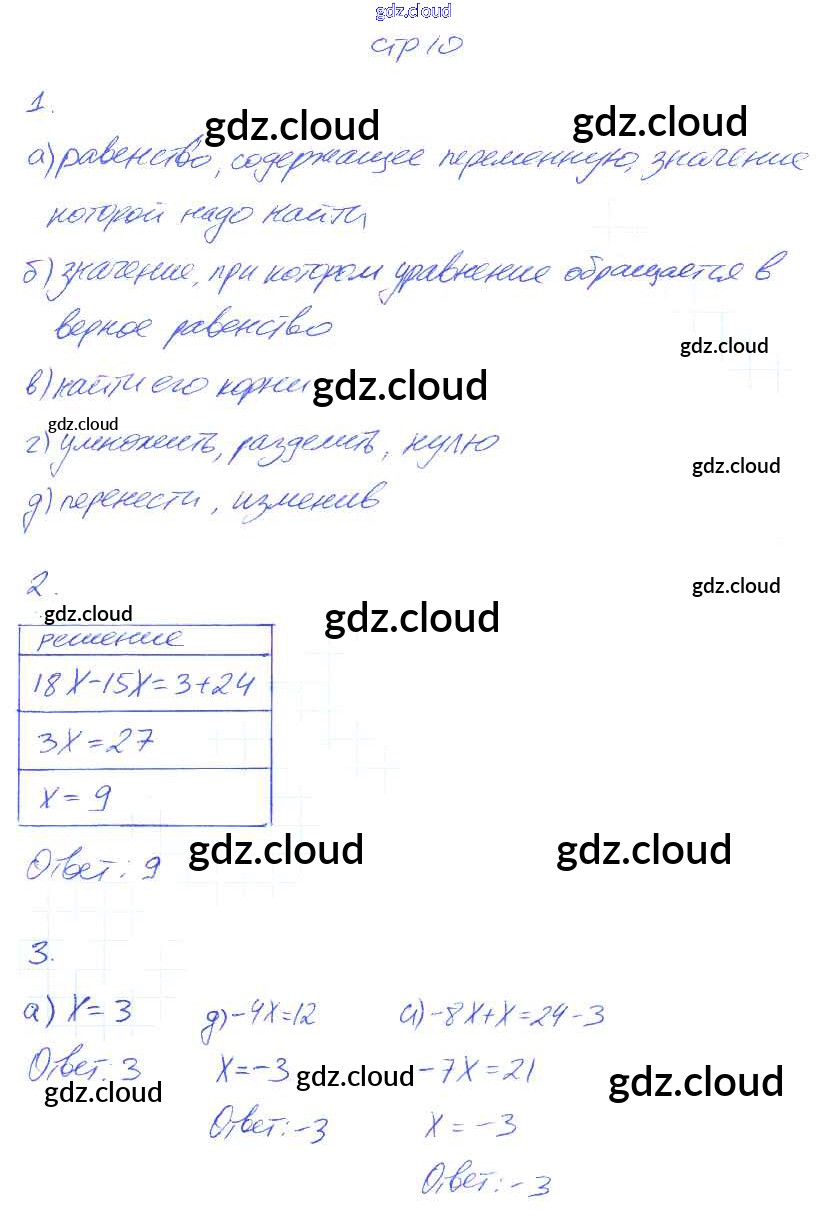 gdz.cloud
стр 10
1.
gdz.cloud gdz.cloud
а) равенство, содержащее переменную, значение
которой надо найти
б) значение, при котором уравнение обращается в
верное равенство
gdz.cloud
в) найти его корни gdz.cloud
gdz.cloud
г) умножить, разделить, нулю
gdz.cloud
д) перенести, изменив
2.
gdz.cloud
gdz.cloud gdz.cloud
решение
18x-15x=3+24
3x=27
x=9
gdz.cloud gdz.cloud
Ответ: 9
3.
а) x=3 д) -4x=12 и) -8x+x=24-3
Ответ: 3 x=-3 -7x=21
gdz.cloud gdz.cloud gdz.cloud
Ответ: -3 x=-3
Ответ: -3